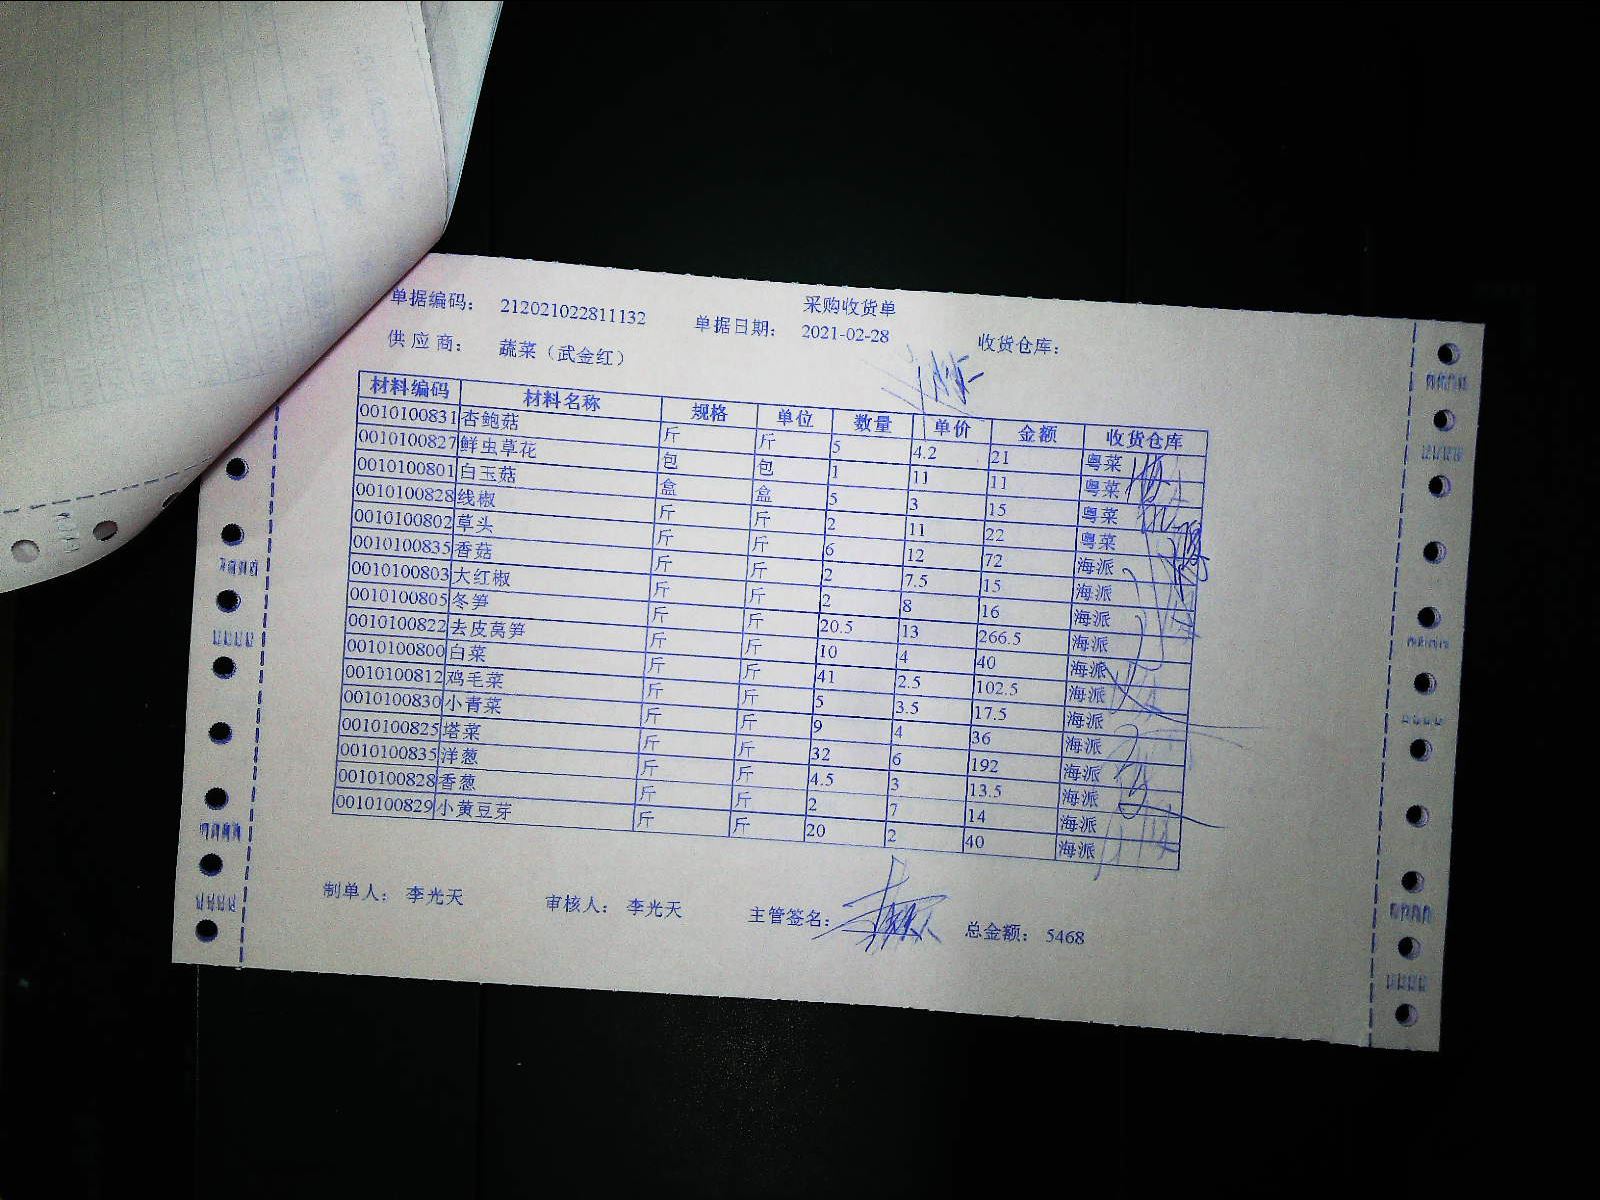 采购收货单
单据编码： 212021022811132 单据日期： 2021-02-28 收货仓库：
供 应 商： 蔬菜（武金红）
材料编码 材料名称 规格 单位 数量 单价 金额 收货仓库
0010100831 杏鲍菇 斤 斤 5 4.2 21 粤菜
0010100827 鲜虫草花 包 包 1 11 11 粤菜
0010100801 白玉菇 盒 盒 5 3 15 粤菜
0010100828 线椒 斤 斤 2 11 22 粤菜
0010100802 草头 斤 斤 6 12 72 海派
0010100835 香菇 斤 斤 2 7.5 15 海派
0010100803 大红椒 斤 斤 2 8 16 海派
0010100805 冬笋 斤 斤 20.5 13 266.5 海派
0010100822 去皮莴笋 斤 斤 10 4 40 海派
0010100800 白菜 斤 斤 41 2.5 102.5 海派
0010100812 鸡毛菜 斤 斤 5 3.5 17.5 海派
0010100830 小青菜 斤 斤 9 4 36 海派
0010100825 塔菜 斤 斤 32 6 192 海派
0010100835 洋葱 斤 斤 4.5 3 13.5 海派
0010100828 香葱 斤 斤 2 7 14 海派
0010100829 小黄豆芽 斤 斤 20 2 40 海派
制单人： 李光天 审核人： 李光天 主管签名： 总金额： 5468